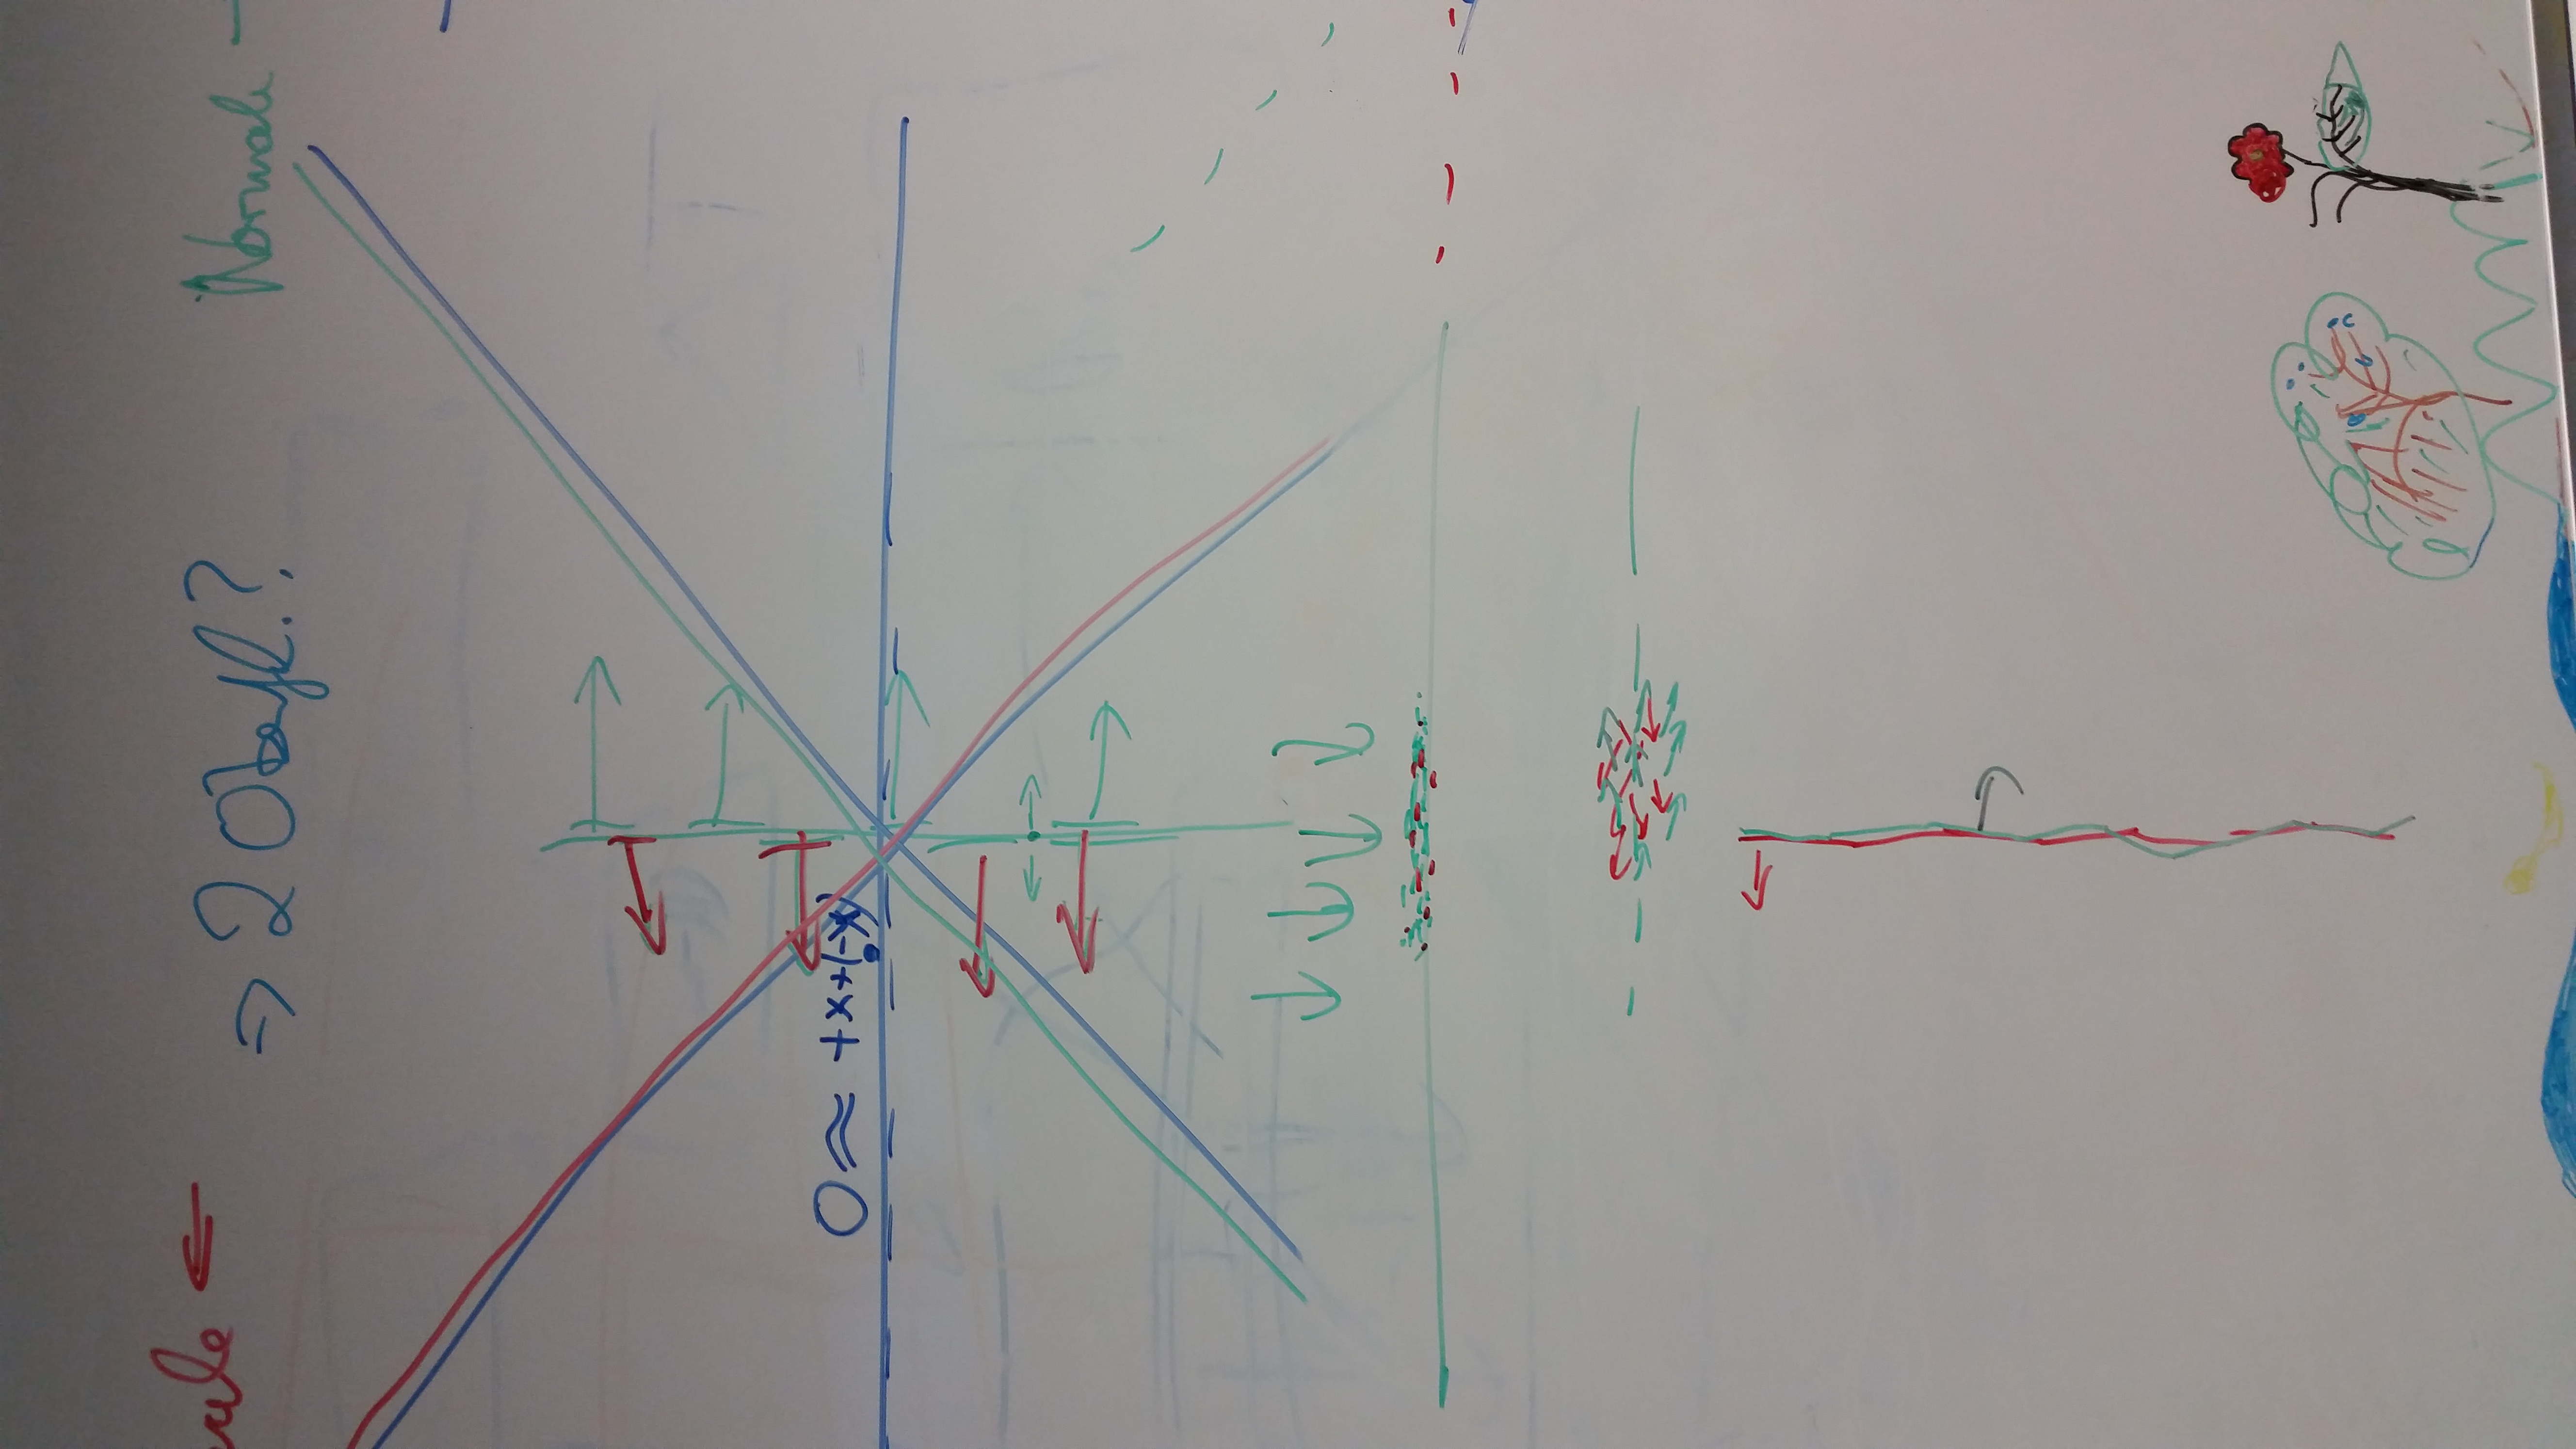 ⇒ 2 Oberfl.?
Normale
0 ≈ +x+(-x)